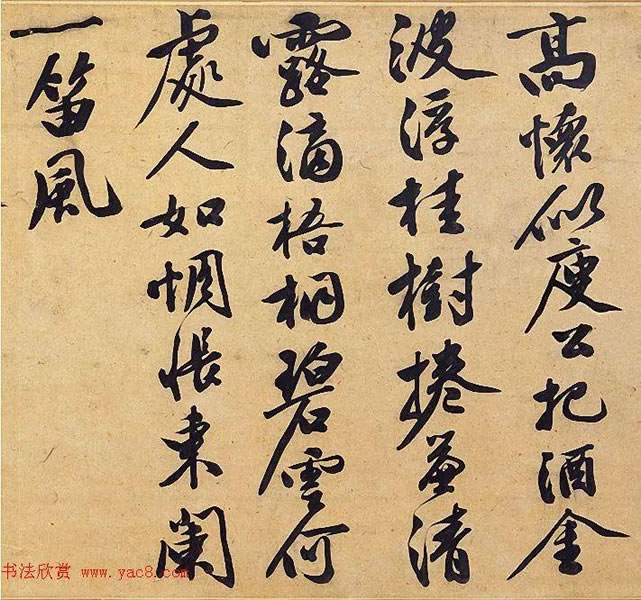 高懷似庾公把酒金
波浮桂樹捲簾清
露滴梧桐碧雲何
處人如惆悵東闌
一笛風
书法欣赏 www.yac8.com